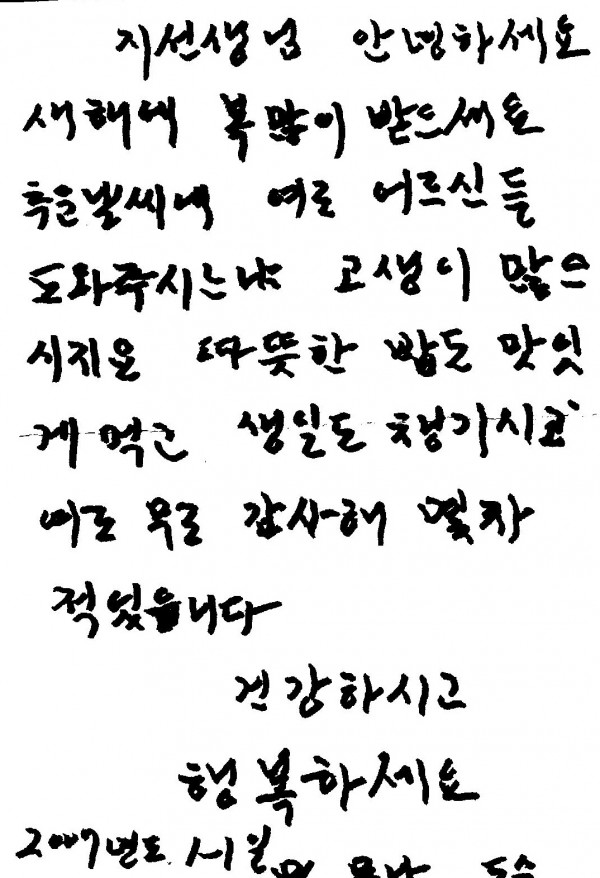 지선생님 안녕하세요
새해에 복많이 받드세요
추운날씨에 여로 어르신들
도와주시는냐 고생이 많으
시지요 따뜻한 밥도 맛잇
게 먹고 생일도 챙기시고
여로 무로 감사해 몇자
적었습니다
건강하시고
행복하세요
2007년도